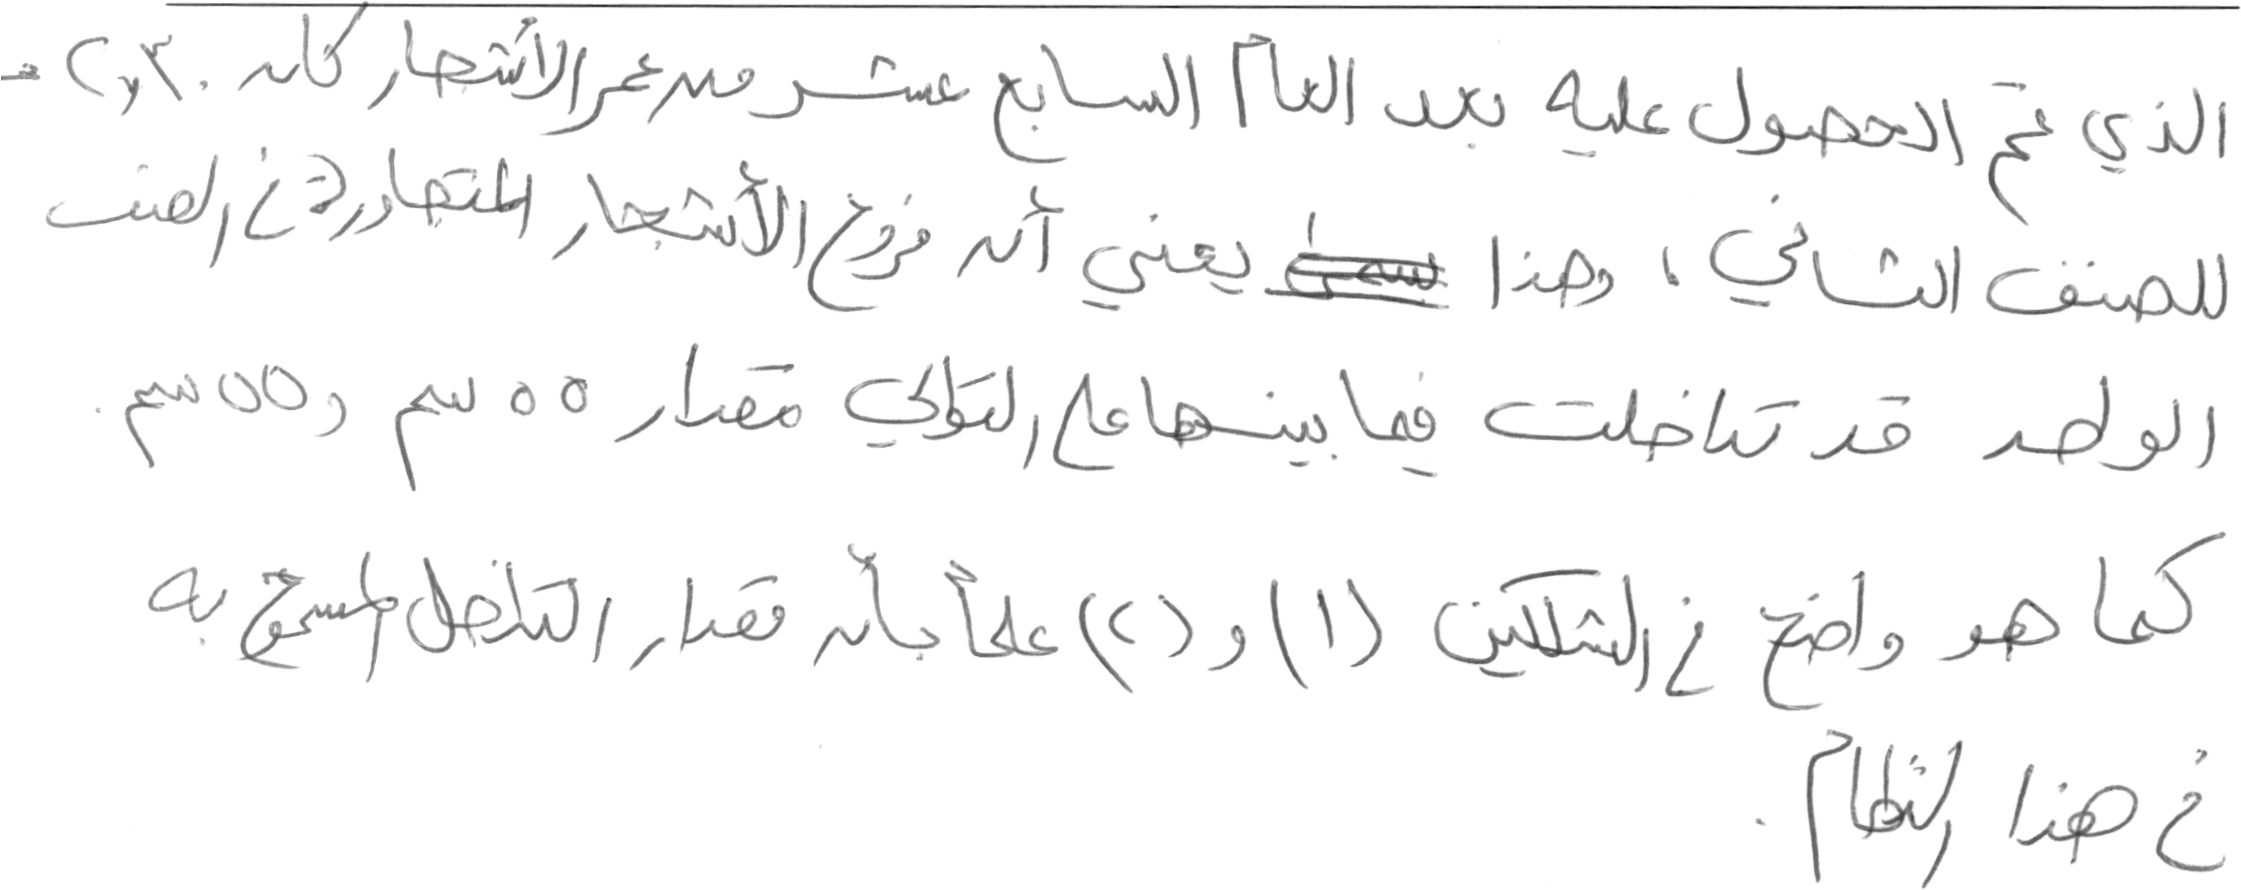 الذي تم الحصول عليه بعد العام السابع عشر من عمر الأشجار كان ٢٫٣٠ م
للصنف الثاني، وهذا يعني أن فروع الأشجار المتجاورة في الصف
الواحد قد تداخلت فيما بينها على التوالي مقدار ٥٥ سم و ٥٥ سم.
كما هو واضح في الشكلين (١) و (٢) علماً بأن مقدار التداخل المسموح به
في هذا النظام.